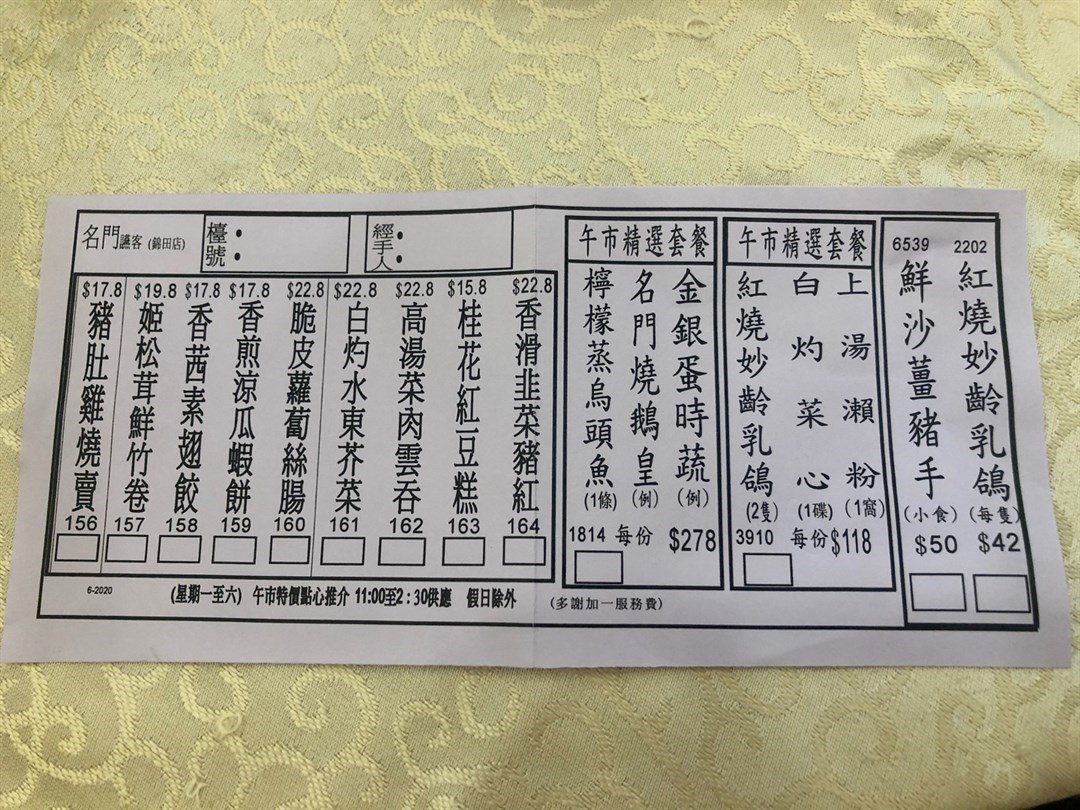 名門讌客 (錦田店)
檯號：
經手人：
$17.8
豬肚雞燒賣
156
$19.8
姬松茸鮮竹卷
157
$17.8
香茜素翅餃
158
$17.8
香煎涼瓜蝦餅
159
$22.8
脆皮蘿蔔絲腸
160
$22.8
白灼水東芥菜
161
$22.8
高湯菜肉雲吞
162
$15.8
桂花紅豆糕
163
$22.8
香滑韭菜豬紅
164
6-2020
(星期一至六) 午市特價點心推介 11:00至2:30供應 假日除外
午市精選套餐
金銀蛋時蔬(例)
名門燒鵝皇(例)
檸檬蒸烏頭魚(1條)
1814 每份 $278
午市精選套餐
上湯瀨粉(1窩)
白灼菜心(1碟)
紅燒妙齡乳鴿(2隻)
3910 每份 $118
(多謝加一服務費)
2202
紅燒妙齡乳鴿(每隻)
$42
6539
鮮沙薑豬手(小食)
$50